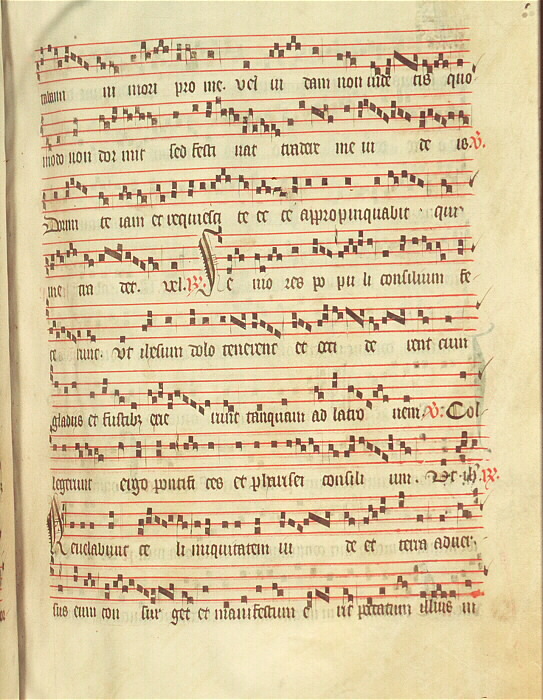 tabatis mori pro me. vel iu dam non uide tis quo
modo non dor mit sed festi nat tradere me iu de is. V.
Dormi te iam et requiesci te ec ce appropinquabit qui
me tra det. vel. R. Se nio res po pu li consilium fe
ce runt. Ut ihesum dolo tenerent et occi de rent cum
gladiis et fustibz exie runt tanquam ad latro nem. V: Col
legerunt ergo pontifi ces et pharisei consili um. Ut ih. R.
Reuelabunt ce li iniquitatem iu de et terra aduer
sus eum con sur get et manifestum e rit peccatum illius in